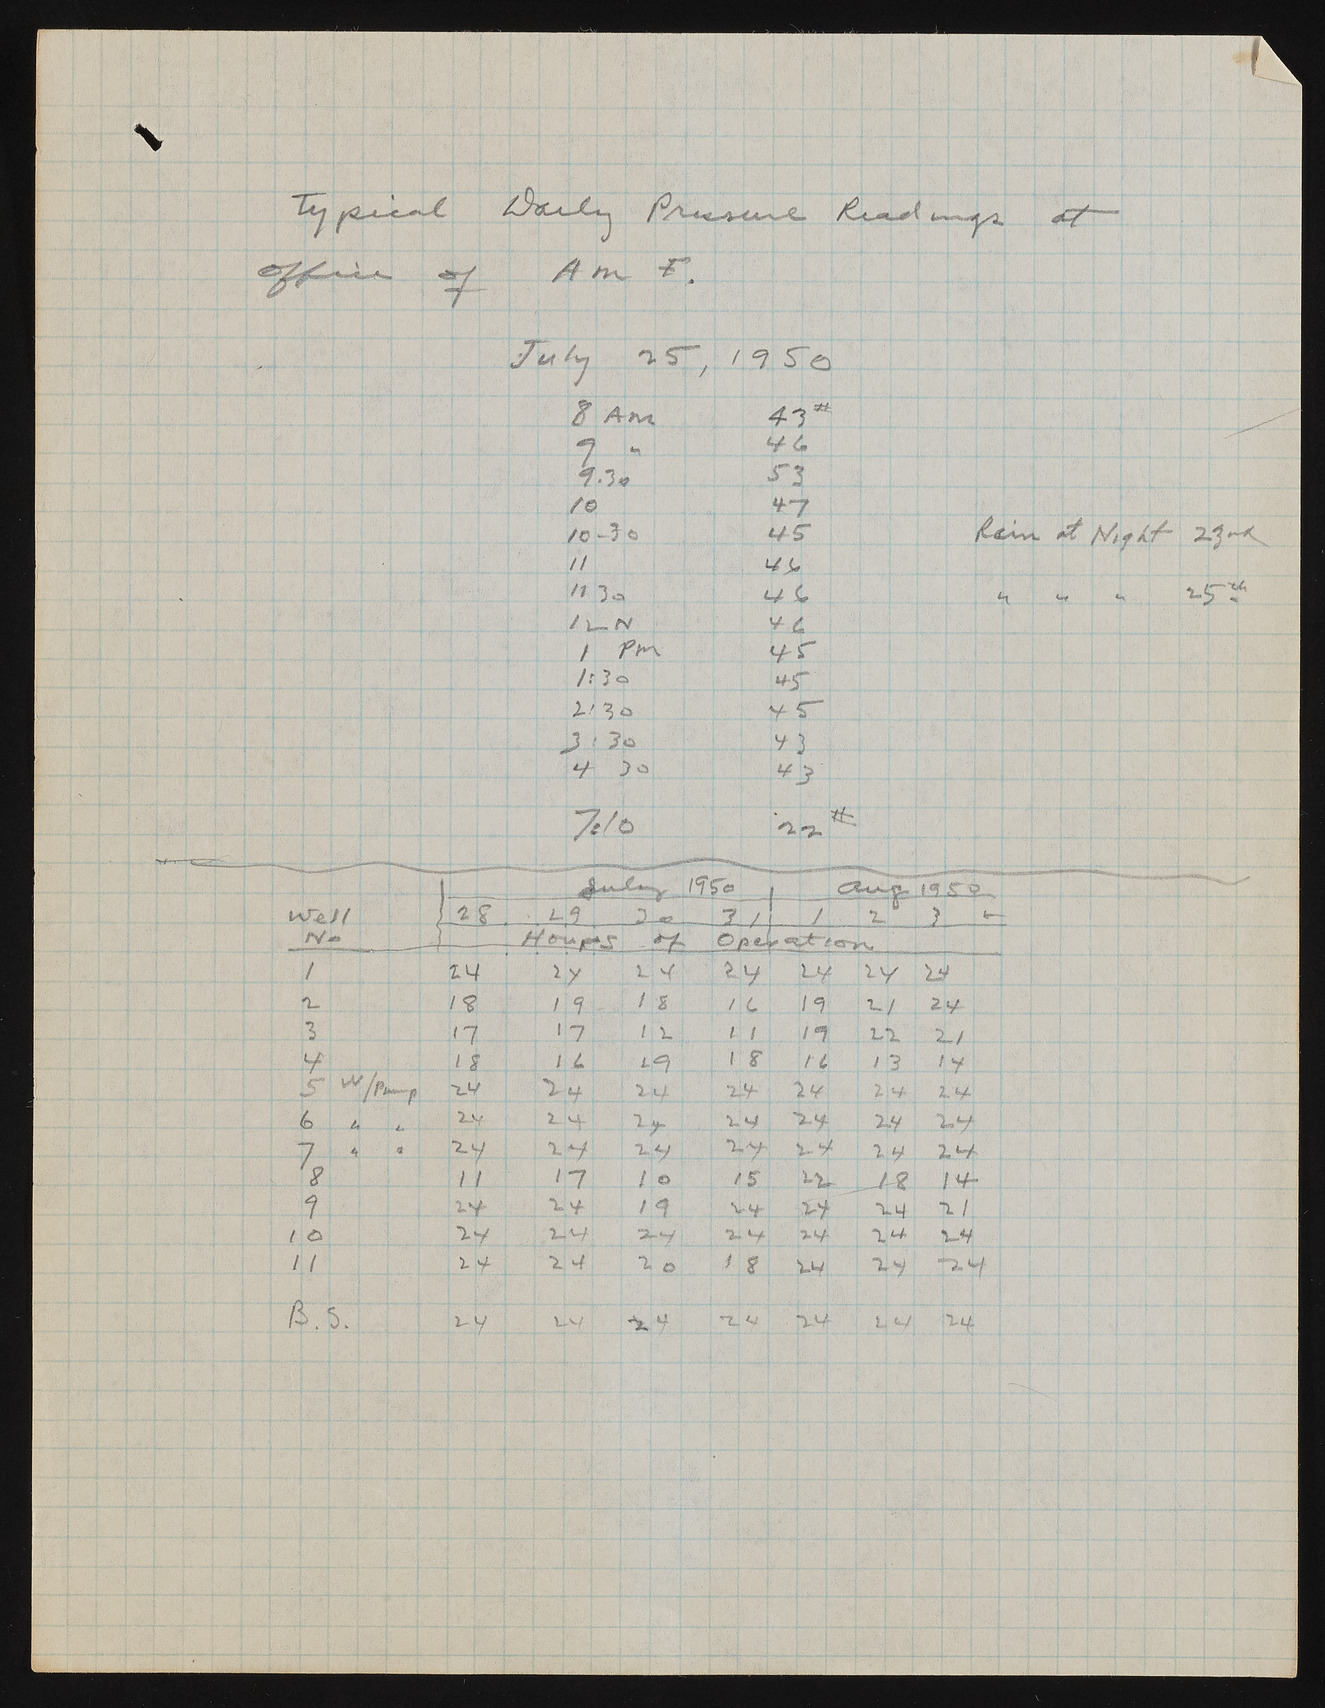 Typical Daily Pressure Readings at
office of Am F.
July 25, 1950
8 Am 43#
9 " 46
9.30 53
10 47
10-30 45 Rain at Night 23rd
11 46
11 30 46 " " " 25th
12 N 46
1 Pm 45
1:30 45
2:30 45
3:30 43
4 30 43
7:10 22#
July 1950 Aug 1950
Well 28 29 30 31 1 2 3
No Hours of Operation
1 24 24 24 24 24 24 24
2 18 19 18 16 19 21 24
3 17 17 12 11 19 22 21
4 18 16 19 18 16 13 14
5 W/Pump 24 24 24 24 24 24 24
6 " " 24 24 24 24 24 24 24
7 " " 24 24 24 24 24 24 24
8 11 17 10 15 22 18 14
9 24 24 19 24 24 24 21
10 24 24 24 24 24 24 24
11 24 24 20 18 24 24 24
B.S. 24 24 24 24 24 24 24